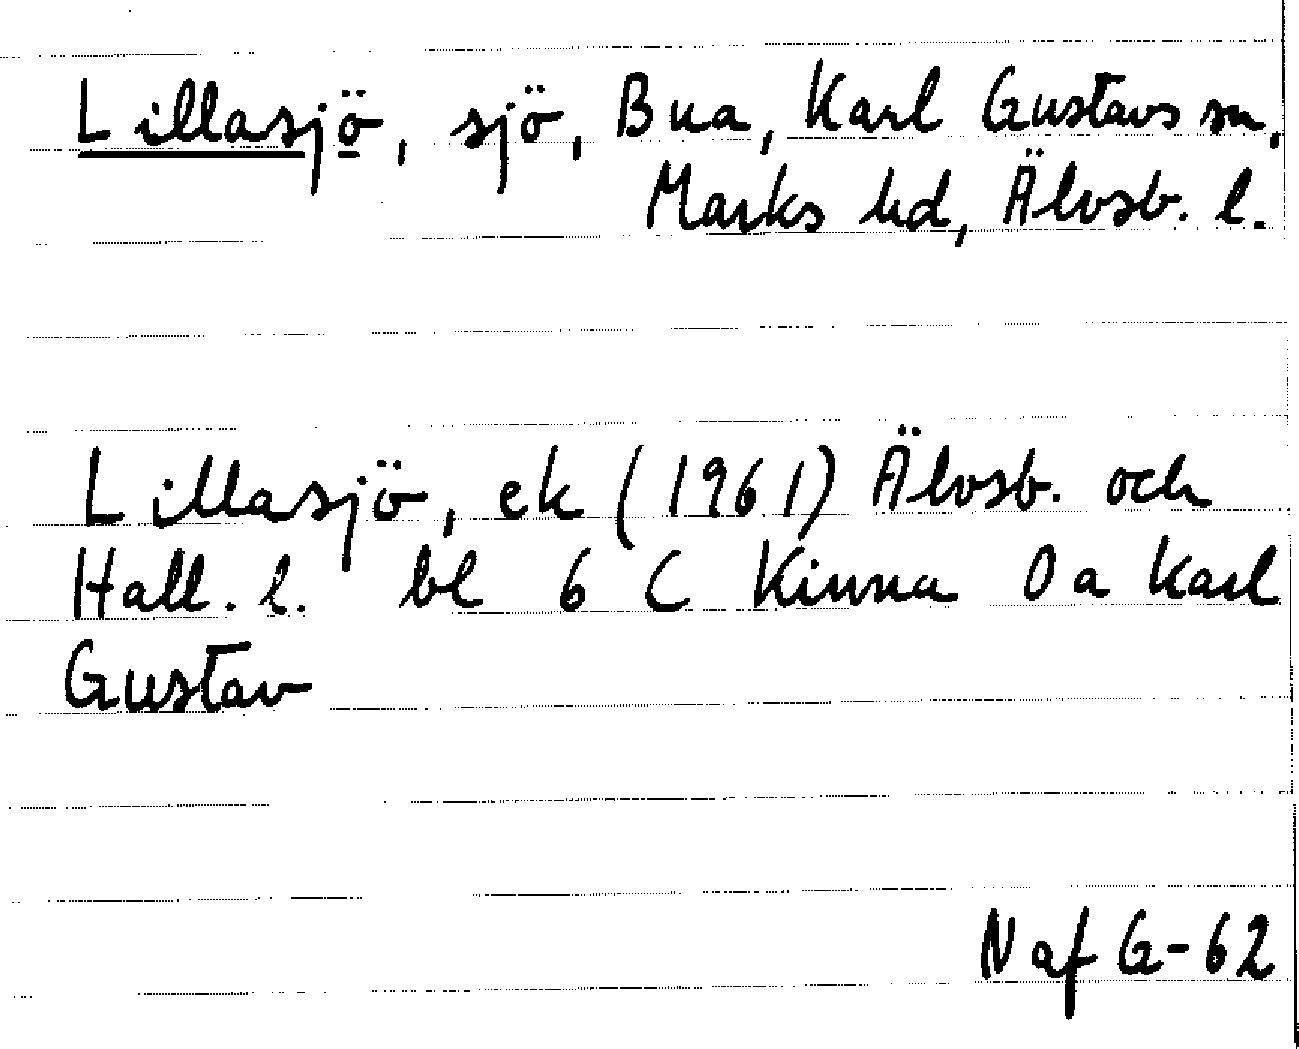 Lillasjö, sjö, Bua, Karl Gustavs sn,
Marks hd, Älvsb. l.
Lillasjö, ek (1961) Älvsb. och
Hall. l. bl 6 C Kinna 0 a Karl
Gustav
N af G-62